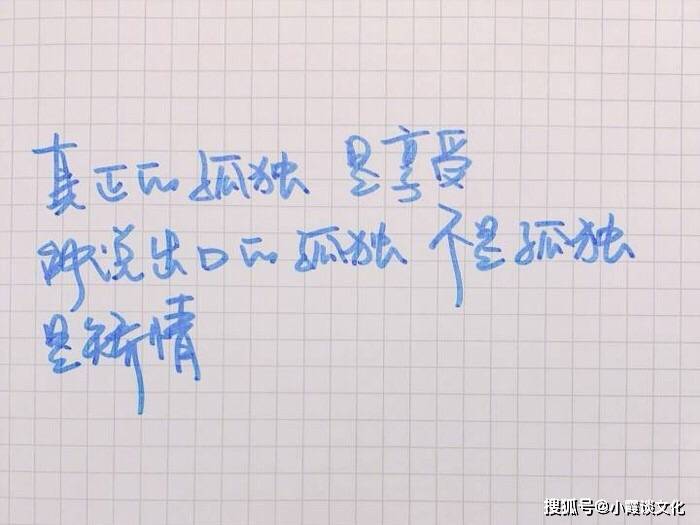 真正的孤独 是享受
能说出口的孤独 不是孤独
是矫情
搜狐号@小霞谈文化